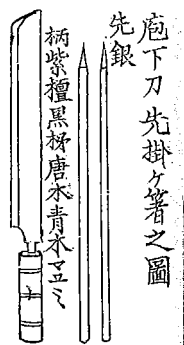 庖下刀先掛ケ箸之圖
先銀
柄紫檀黒柹唐木青木マユミ